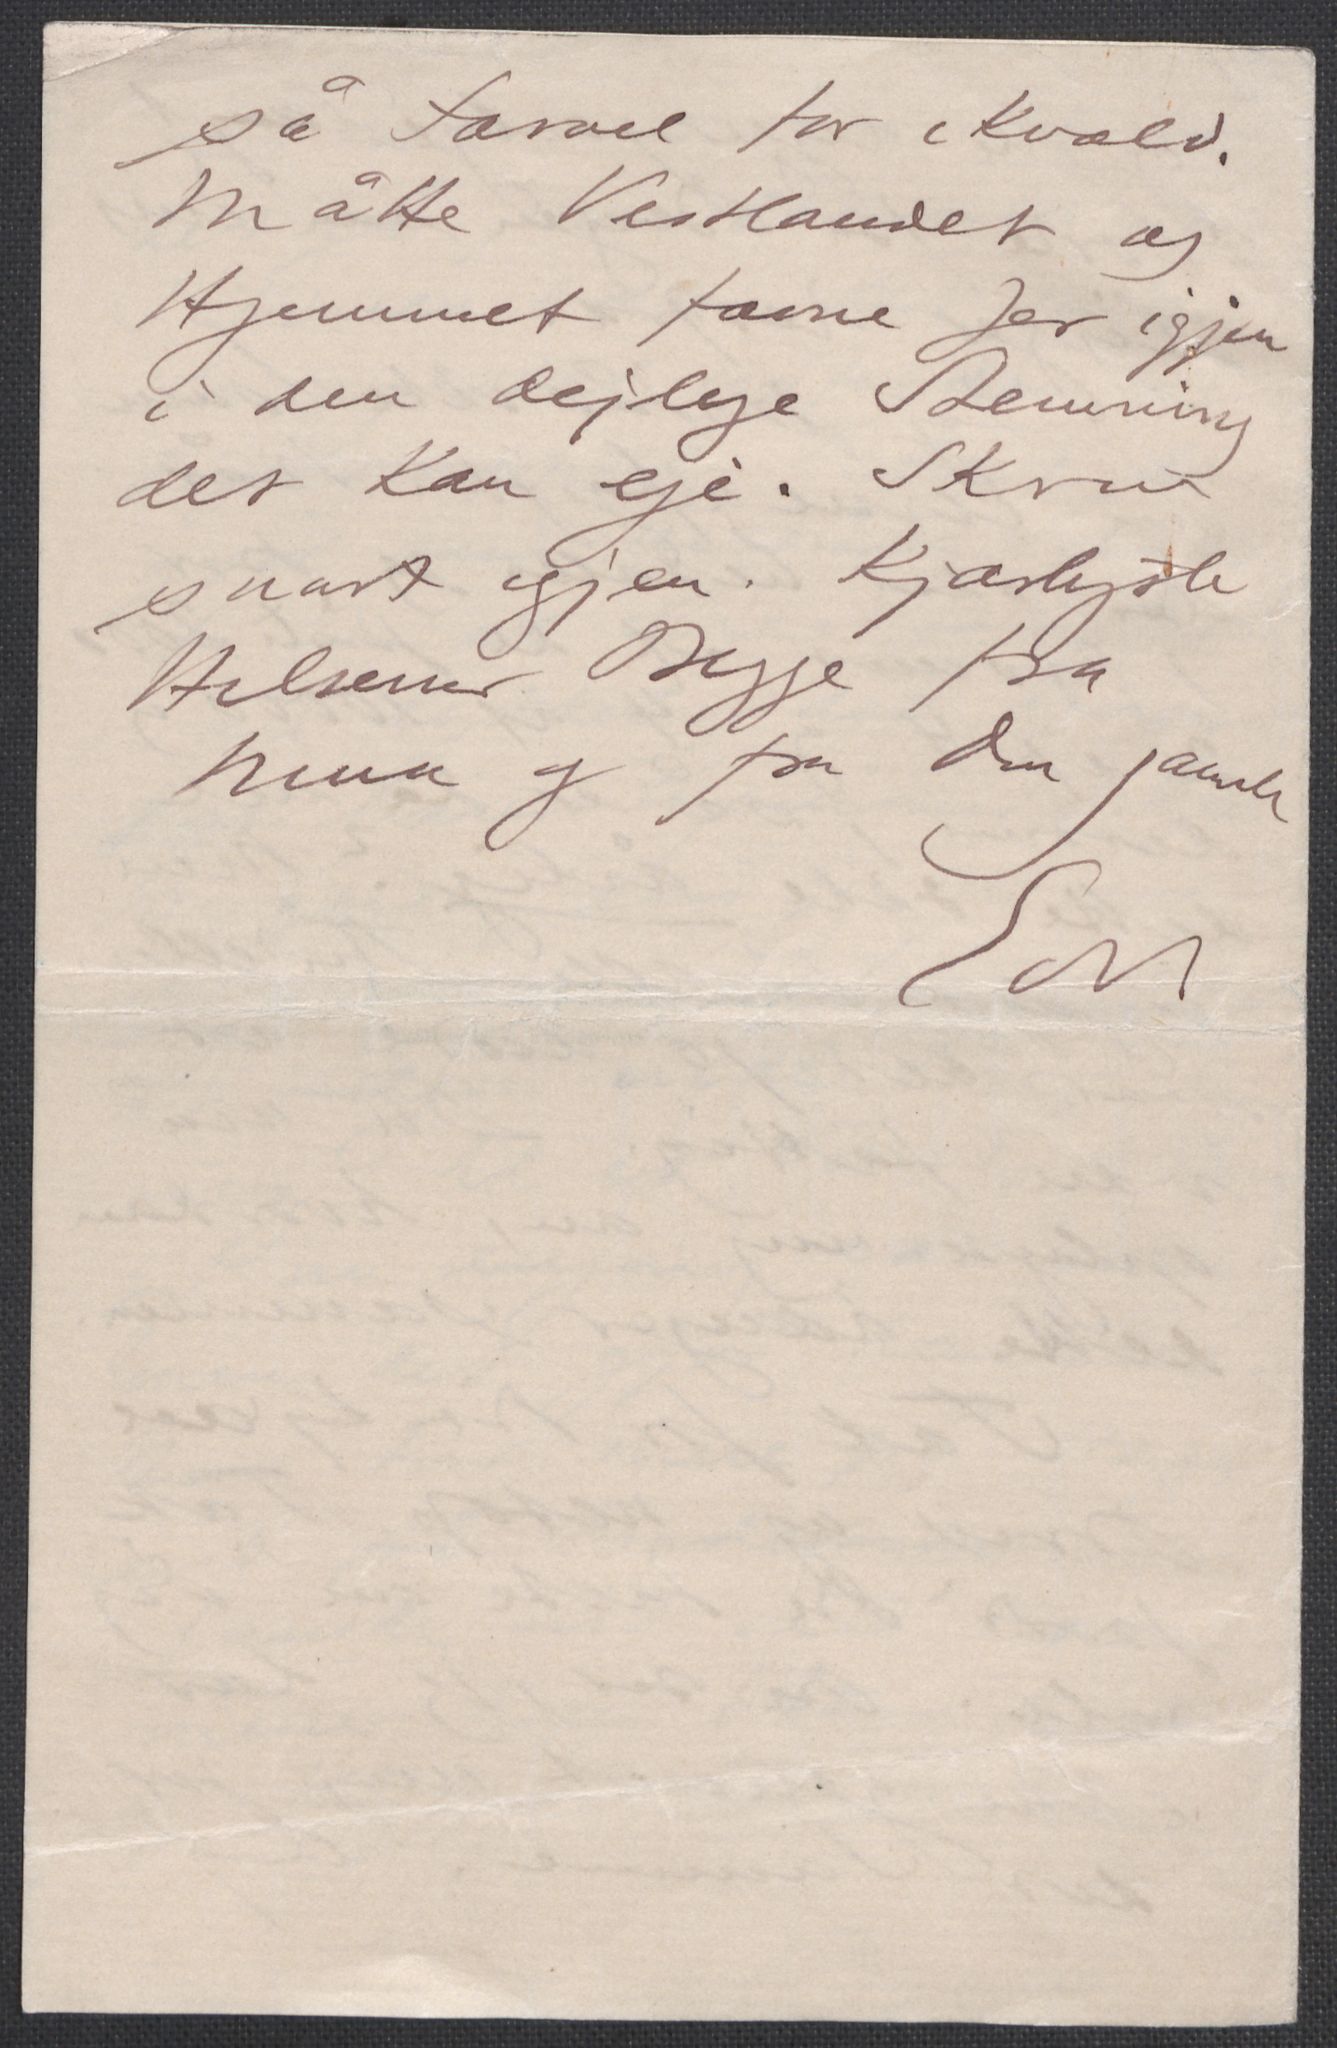 så Farvel for iKvæld.
Måtte Vestlandet og
Hjemmet favne Jer igjen
i den dejlige Stemning
det kan eje. Skriv
snart igjen. Kjærligste
Hilsener Begge fra
Nina og fra Din gamle